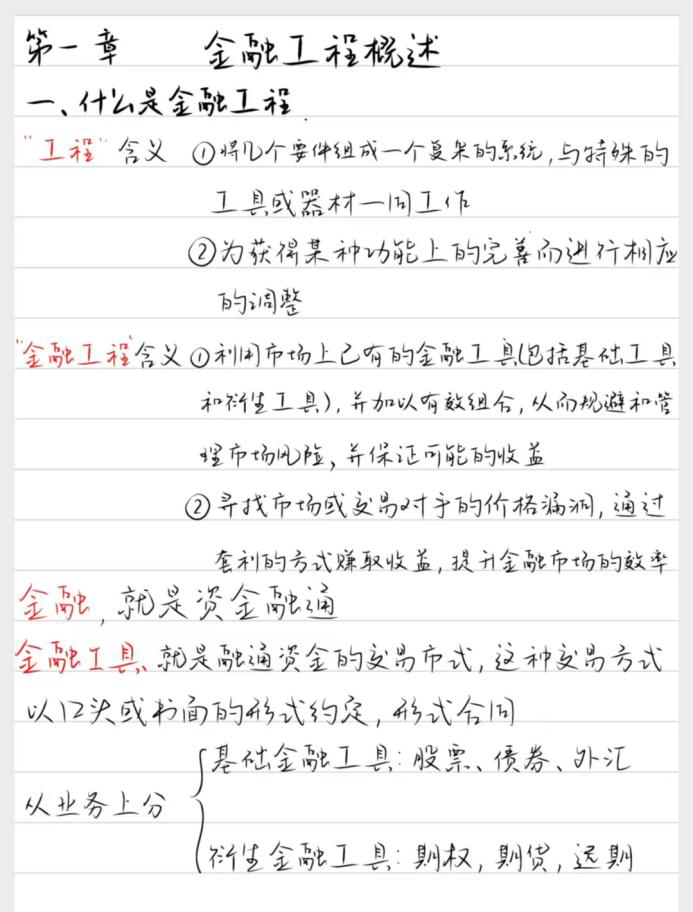 第一章 金融工程概述
一、什么是金融工程
"工程"含义 ①将几个要件组成一个复杂的系统,与特殊的
工具或器材一同工作
②为获得某种功能上的完善而进行相应
的调整
"金融工程"含义 ①利用市场上已有的金融工具(包括基础工具
和衍生工具),并加以有效组合,从而规避和管
理市场风险,并保证可能的收益
②寻找市场或交易对手的价格漏洞,通过
套利的方式赚取收益,提升金融市场的效率
金融,就是资金融通
金融工具、就是融通资金的交易市式,这种交易方式
以口头或书面的形式约定,形式合同
从业务上分
基础金融工具:股票、债券、外汇
衍生金融工具:期权,期货,远期